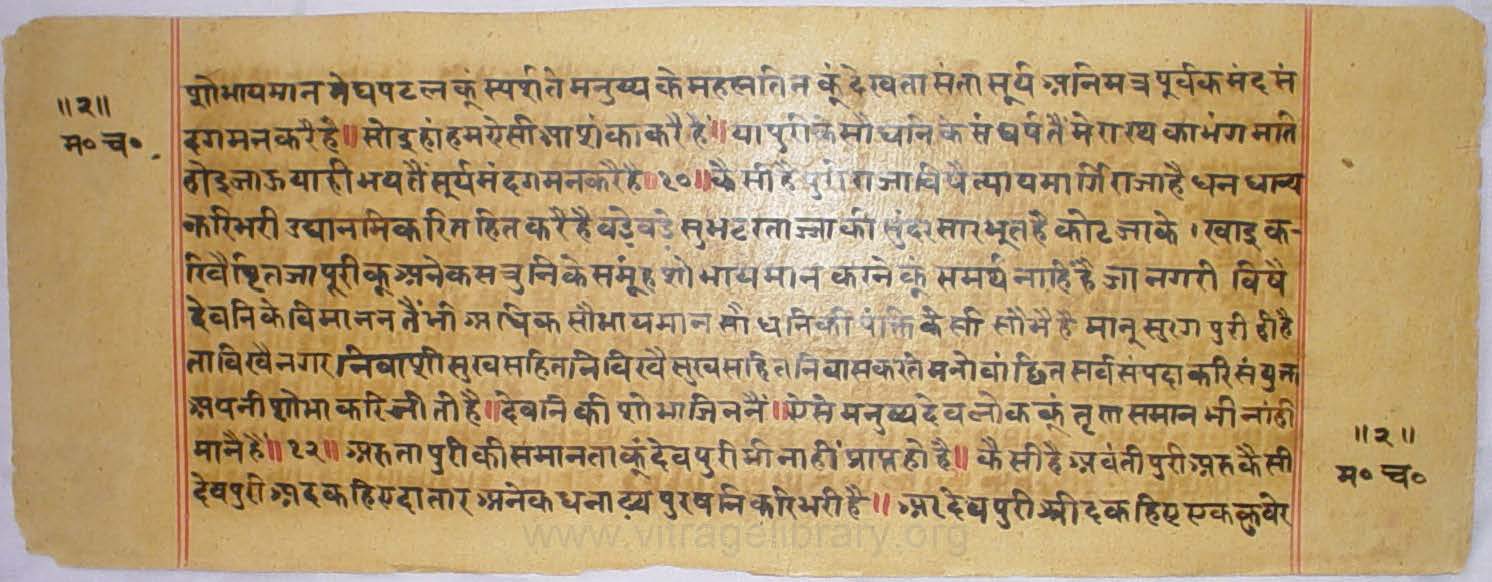 ॥२॥
म० च०
शोभायमान मेघपटल कूं स्पर्शते मनुष्य के महलनितिन कूं देखता संता सूर्य अनिमत्र पूर्वक मंद मं
दगमन करै है॥ सो इहां हम ऐसी आशंका करै है॥ या पुरी के सौधनि के संघर्ष तैं मेरा रथ का भंग मति
होइ जाऊ याही भय तैं सूर्य मंद गमन करै है॥१०॥ कैसी है पुरी राजा विषै न्यायमार्गि राजा है धन धान्य
करि भरी उद्यान करि सहित करै है वडे वडे सुभट रता जाकी सुंदर सारभूत है कोट जाके। खाइ क-
रिवैष्टित जा पूरी कू अनेक सत्रुनि के समूंह शोभायमान करने कूं समर्थ नाहिं है जा नगरी विषै
देवनि के विमानन तैं भी अधिक सौभायमान सौधनि की पंक्ति कैसी सौभै है मानू सुरग पुरी ही है
ता विखै नगर निवाशी सुख सहितनि विखै सुख सहित निवास करते मनोवांछित सर्व संपदा करि संयुक्त
अपनी शोभा करि जीती है॥ देवनि की शोभा जिननैं॥ ऐसे मनुष्य देवलोक कूं तृण समान भी नांही
मानै है॥१२॥ अरु ता पुरी की समानता कूं देवपुरी भी नाहीं प्राप्त हो है॥ कैसी है अवंती पुरी अरु कैसी
देवपुरी अद कहिए दातार अनेक धनाढ्य पुरषनि करि भरी है॥ अर देवपुरी श्रीद कहिए एक कुवेर
॥२॥
म० च०
www.vitragelibrary.org